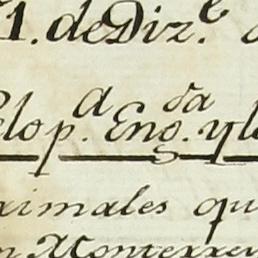 1. de Diz.e
elop.a Eng.da y l
ximales qu
n Monterrey